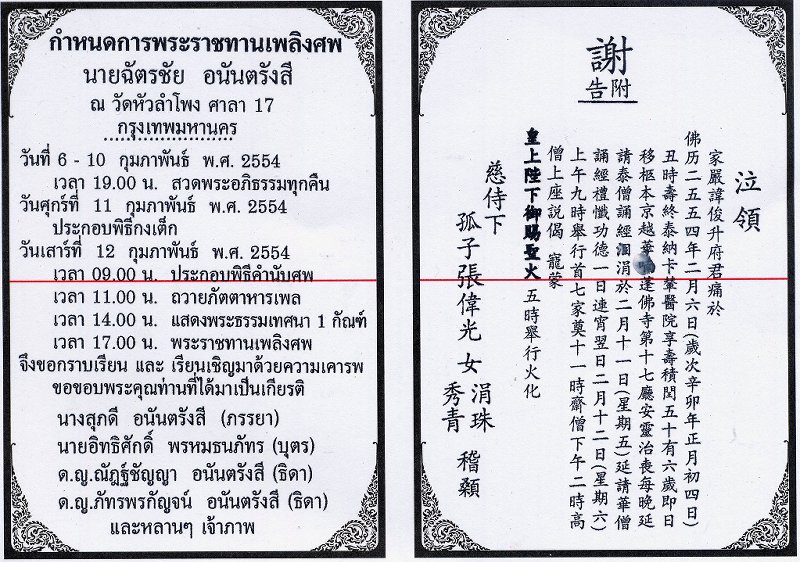 กำหนดการพระราชทานเพลิงศพ
นายฉัตรชัย อนันตรังสี
ณ วัดหัวลำโพง ศาลา 17
กรุงเทพมหานคร
วันที่ 6 - 10 กุมภาพันธ์ พ.ศ. 2554
เวลา 19.00 น. สวดพระอภิธรรมทุกคืน
วันศุกร์ที่ 11 กุมภาพันธ์ พ.ศ. 2554
ประกอบพิธีกงเต็ก
วันเสาร์ที่ 12 กุมภาพันธ์ พ.ศ. 2554
เวลา 09.00 น. ประกอบพิธีคำนับศพ
เวลา 11.00 น. ถวายภัตตาหารเพล
เวลา 14.00 น. แสดงพระธรรมเทศนา 1 กัณฑ์
เวลา 17.00 น. พระราชทานเพลิงศพ
จึงขอกราบเรียน และ เรียนเชิญมาด้วยความเคารพ
ขอขอบพระคุณท่านที่ได้มาเป็นเกียรติ
นางสุภดี อนันตรังสี (ภรรยา)
นายอิทธิศักดิ์ พรหมธนภัทร (บุตร)
ด.ญ.ณัฏฐ์ชัญญา อนันตรังสี (ธิดา)
ด.ญ.ภัทรพรกัญจน์ อนันตรังสี (ธิดา)
และหลานๆ เจ้าภาพ
謝
告附
泣領
家嚴諱俊升府君痛於
佛历二五五四年二月六日(歲次辛卯年正月初四日)
丑時壽終泰納卡輦醫院享壽積閏五十有六歲即日
移柩本京越華蓬佛寺第十七廳安靈治喪每晚延
請泰僧誦經涓於二月十一日(星期五)延請華僧
誦經禮懺功德一日連宵翌日二月十二日(星期六)
上午九時舉行首七家奠十一時齋僧下午二時高
僧上座説偈 寵蒙
皇上陛下御賜聖火 五時舉行火化
慈侍下
孤子張偉光 女 涓珠 稽顙
秀青